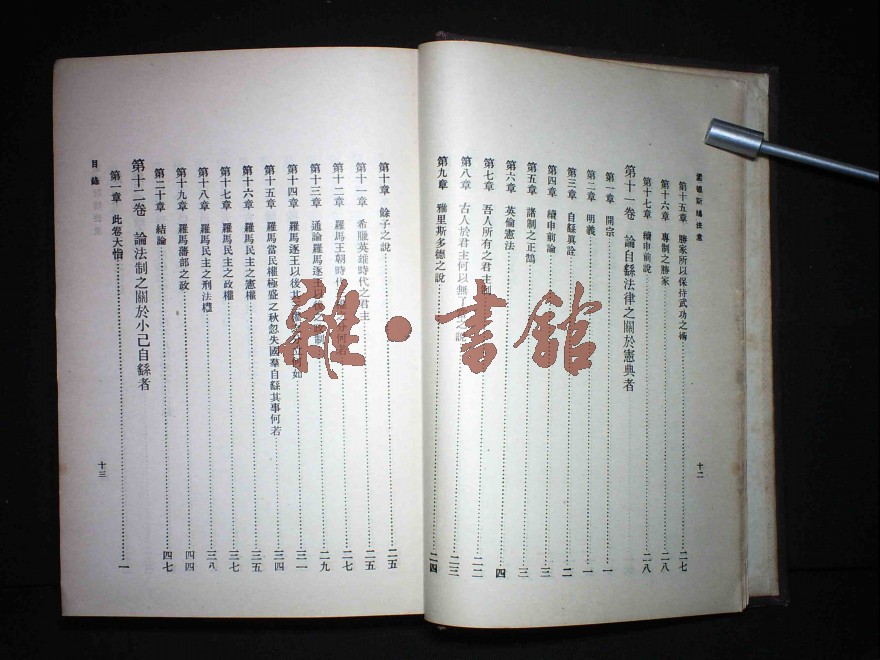 孟德斯鳩法意
第十五章 勝家所以保持武功之術 二七
第十六章 專制之勝家 二八
第十七章 續申前說 二八
第十一卷 論自繇法律之關於憲典者
第一章 開宗 一
第二章 明義 一
第三章 自繇眞詮 二
第四章 續申前論 三
第五章 諸制之正鵠 三
第六章 英倫憲法 四
第七章 吾人所有之君主 二二
第八章 古人於君主何以無 之說 二三
第九章 雅里斯多德之說 二四
十二
第十章 餘子之說 二五
第十一章 希臘英雄時代之君主 二五
第十二章 羅馬王朝時 何若 二七
第十三章 通論羅馬逐王以 制 二九
第十四章 羅馬逐王以後其 如 三一
第十五章 羅馬當民權極盛之秋忽失國羣自繇其事何若 三四
第十六章 羅馬民主之憲權 三五
第十七章 羅馬民主之政權 三七
第十八章 羅馬民主之刑法權 三八
第十九章 羅馬藩部之政 四四
第二十章 結論 四七
第十二卷 論法制之關於小己自繇者
第一章 此卷大恉 一
目錄
十三
雜·書館